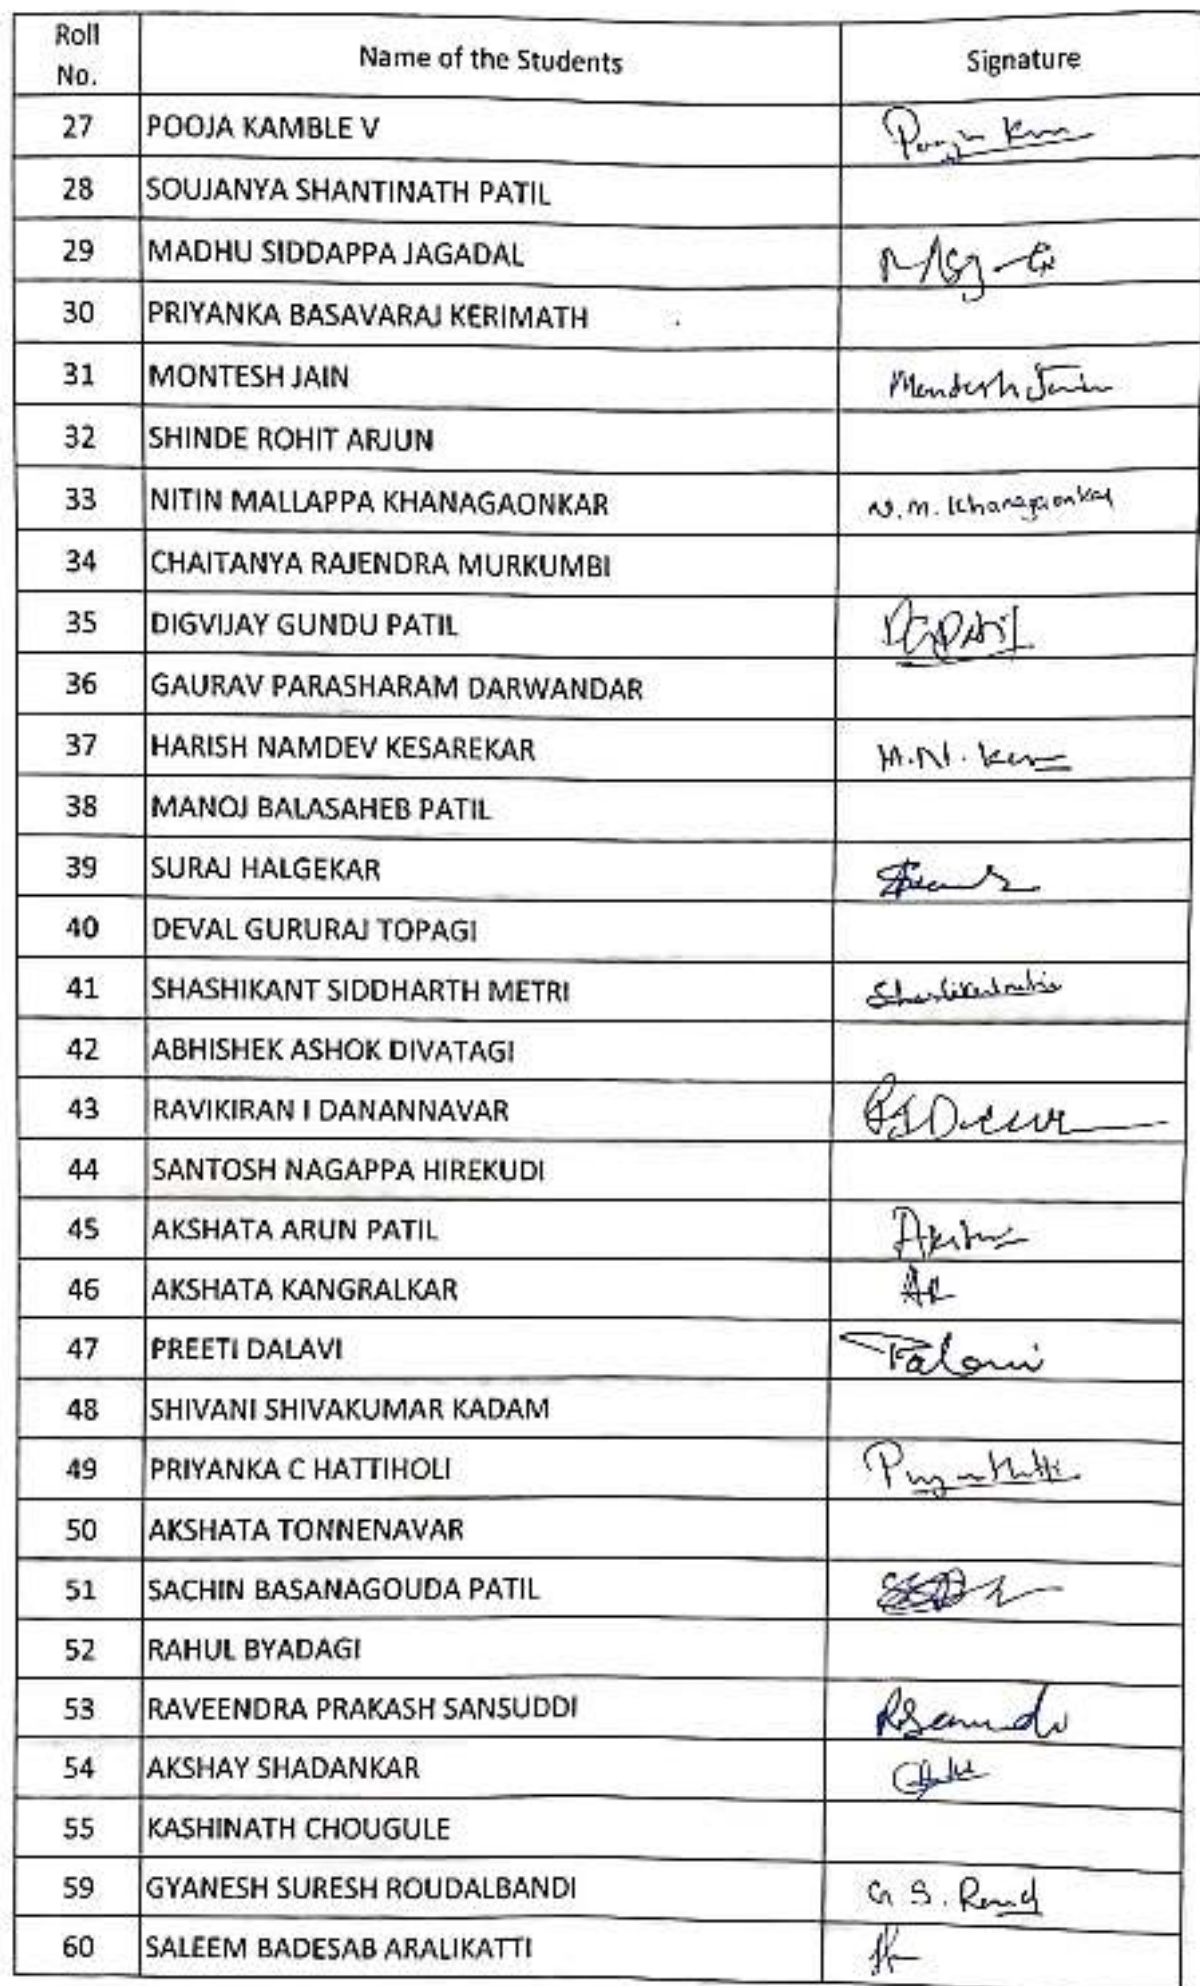 Roll No. Name of the Students Signature
27 POOJA KAMBLE V
28 SOUJANYA SHANTINATH PATIL
29 MADHU SIDDAPPA JAGADAL
30 PRIYANKA BASAVARAJ KERIMATH
31 MONTESH JAIN Montesh Jain
32 SHINDE ROHIT ARJUN
33 NITIN MALLAPPA KHANAGAONKAR N.M. Khanagaonkar
34 CHAITANYA RAJENDRA MURKUMBI
35 DIGVIJAY GUNDU PATIL DGPatil
36 GAURAV PARASHARAM DARWANDAR
37 HARISH NAMDEV KESAREKAR H.N.
38 MANOJ BALASAHEB PATIL
39 SURAJ HALGEKAR
40 DEVAL GURURAJ TOPAGI
41 SHASHIKANT SIDDHARTH METRI
42 ABHISHEK ASHOK DIVATAGI
43 RAVIKIRAN I DANANNAVAR
44 SANTOSH NAGAPPA HIREKUDI
45 AKSHATA ARUN PATIL
46 AKSHATA KANGRALKAR
47 PREETI DALAVI
48 SHIVANI SHIVAKUMAR KADAM
49 PRIYANKA C HATTIHOLI
50 AKSHATA TONNENAVAR
51 SACHIN BASANAGOUDA PATIL
52 RAHUL BYADAGI
53 RAVEENDRA PRAKASH SANSUDDI
54 AKSHAY SHADANKAR
55 KASHINATH CHOUGULE
59 GYANESH SURESH ROUDALBANDI G S.
60 SALEEM BADESAB ARALIKATTI